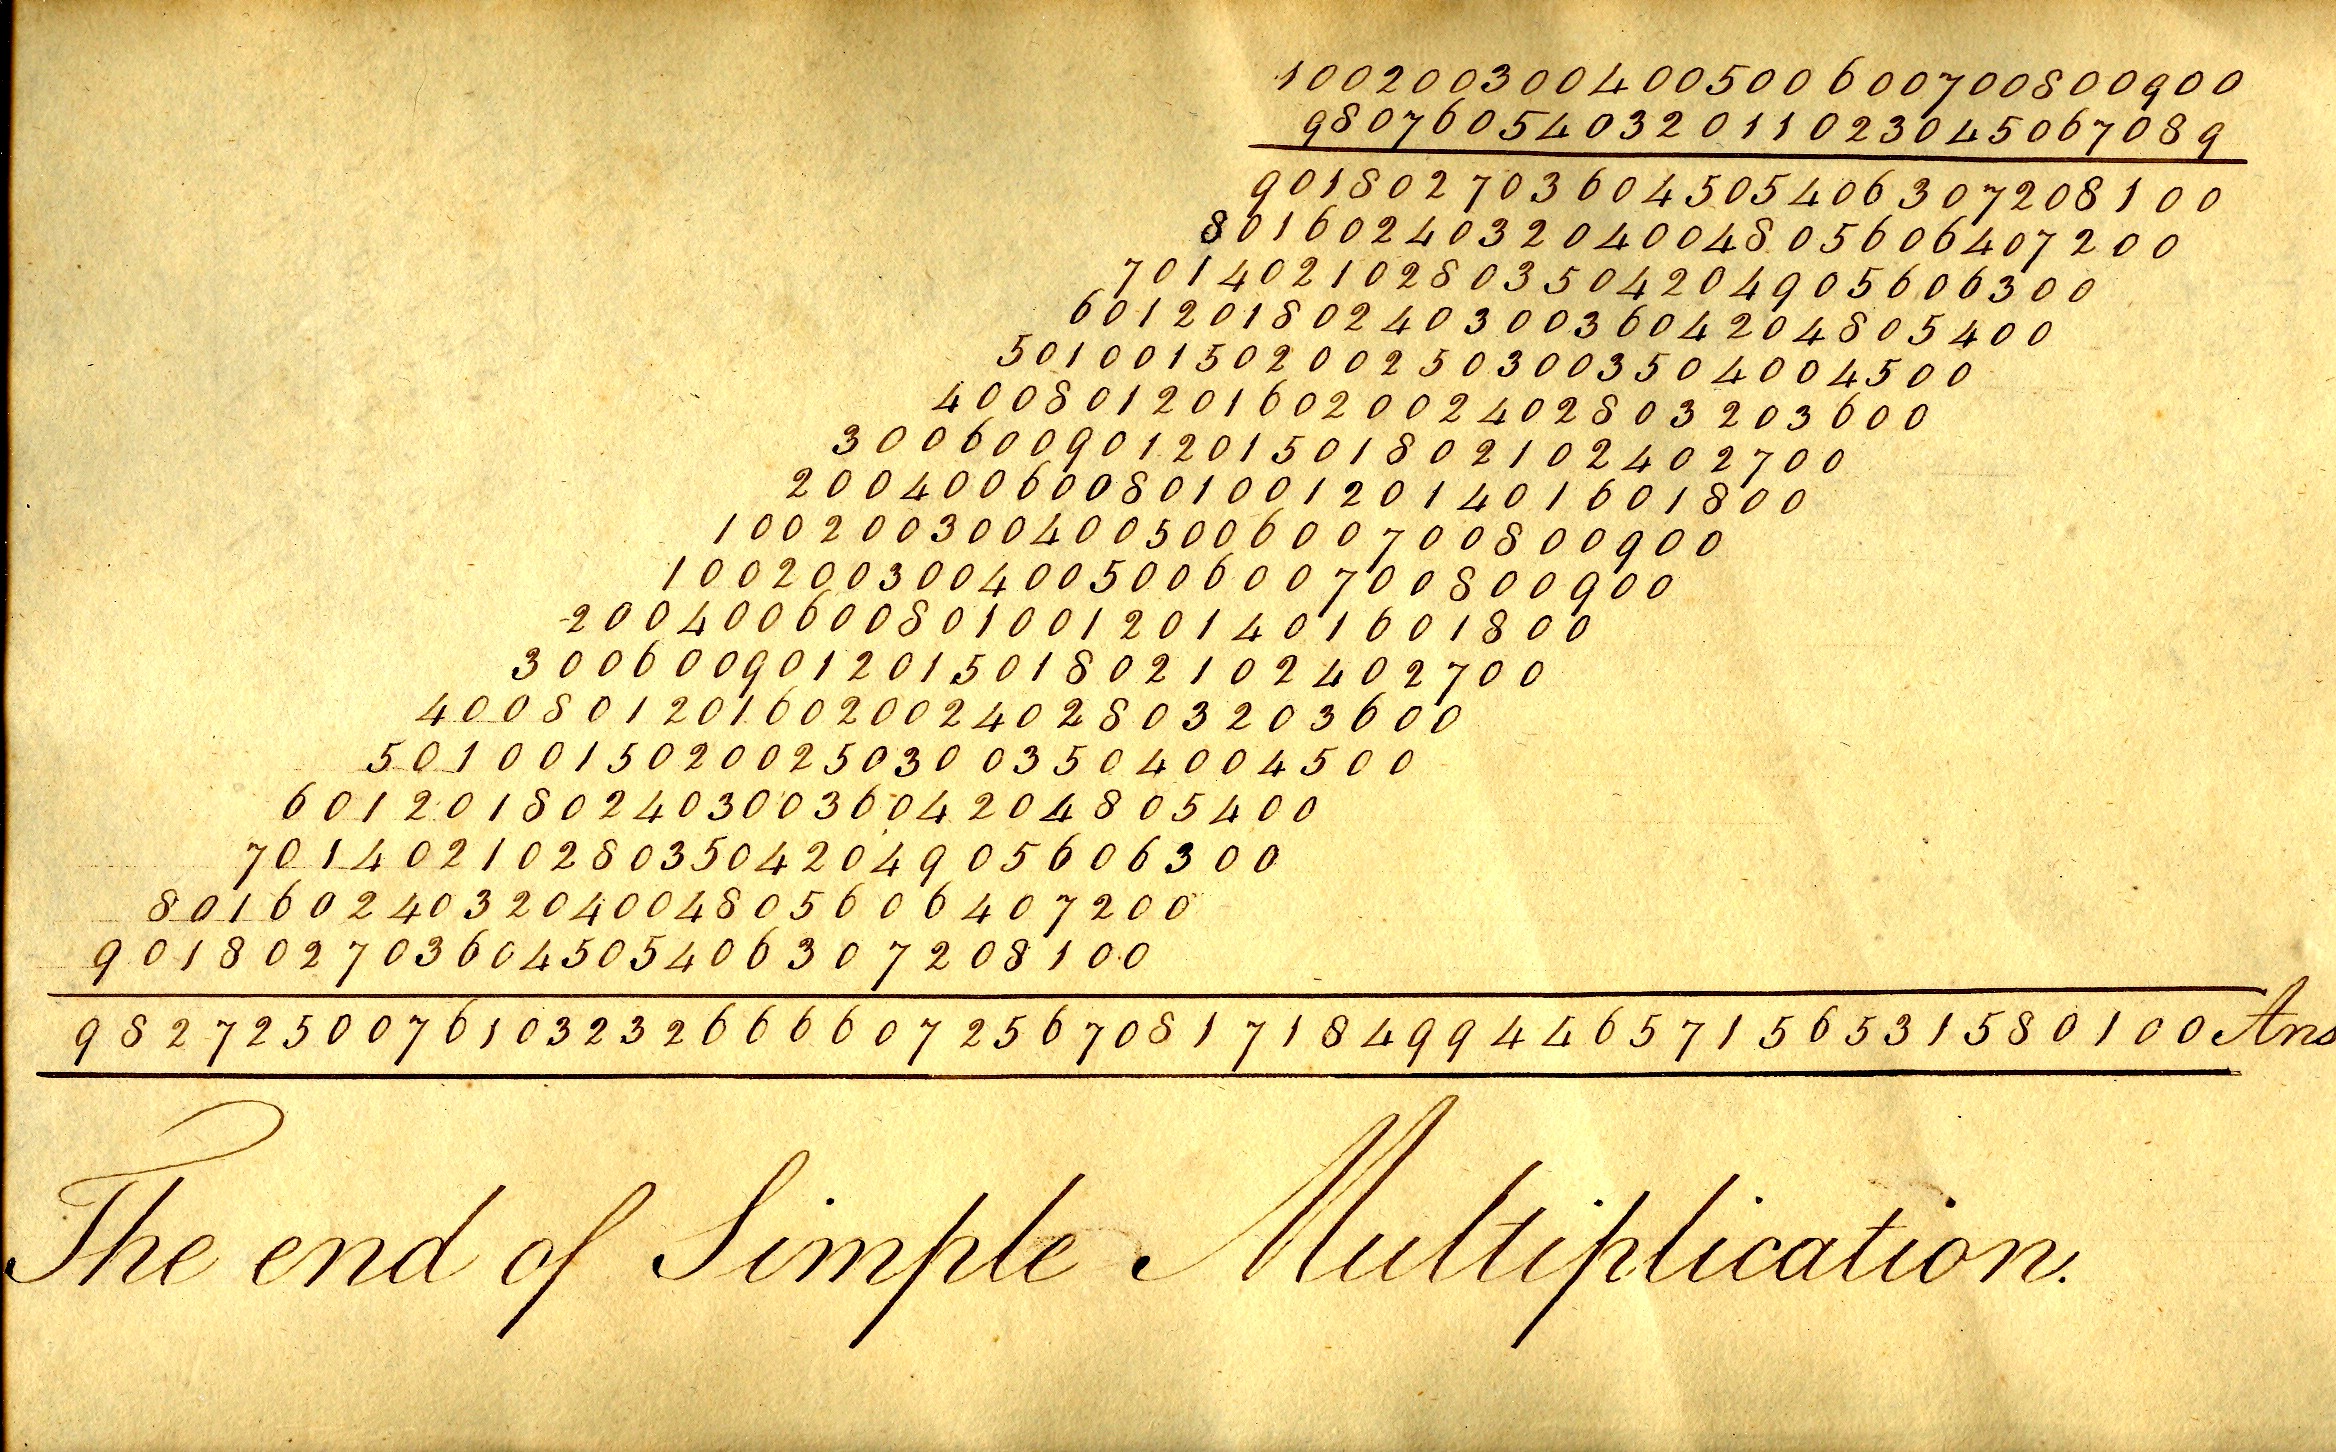 100200300400500600700800900
98076054032011023045067089
901802703604505406307208100
801602403204004805606407200
701402102803504204905606300
601201802403003604204805400
501001502002503003504004500
400801201602002402803203600
300600901201501802102402700
200400600801001201401601800
100200300400500600700800900
100200300400500600700800900
200400600801001201401601800
300600901201501802102402700
400801201602002402803203600
501001502002503003504004500
601201802403003604204805400
701402102803504204905606300
801602403204004805606407200
901802703604505406307208100
9827250076103232666607256708171849944657156531580100 Ans
The end of Simple Multiplication.